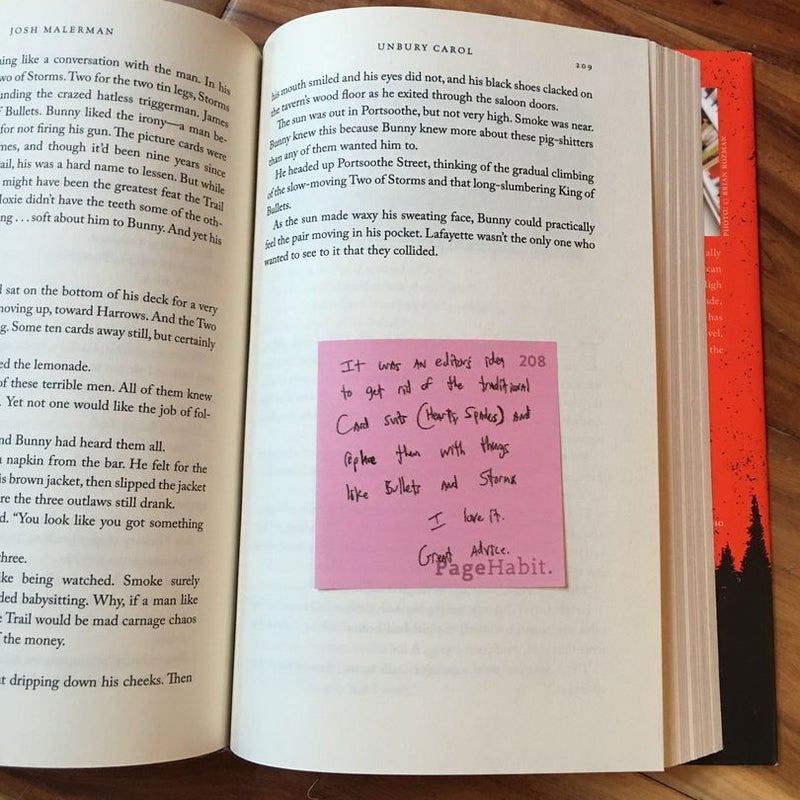 JOSH MALERMAN
ning like a conversation with the man. In his
wo of Storms. Two for the two tin legs, Storms
unding the crazed hatless triggerman. James
f Bullets. Bunny liked the irony—a man be-
for not firing his gun. The picture cards were
mes, and though it'd been nine years since
ail, his was a hard name to lessen. But while
might have been the greatest feat the Trail
Moxie didn't have the teeth some of the oth-
ng . . . soft about him to Bunny. And yet his
l sat on the bottom of his deck for a very
moving up, toward Harrows. And the Two
g. Some ten cards away still, but certainly
ed the lemonade.
of these terrible men. All of them knew
. Yet not one would like the job of fol-
nd Bunny had heard them all.
a napkin from the bar. He felt for the
is brown jacket, then slipped the jacket
re the three outlaws still drank.
d. "You look like you got something
three.
ke being watched. Smoke surely
ded babysitting. Why, if a man like
e Trail would be mad carnage chaos
f the money.
at dripping down his cheeks. Then
UNBURY CAROL
209
his mouth smiled and his eyes did not, and his black shoes clacked on
the tavern's wood floor as he exited through the saloon doors.
The sun was out in Portsoothe, but not very high. Smoke was near.
Bunny knew this because Bunny knew more about these pig-shitters
than any of them wanted him to.
He headed up Portsoothe Street, thinking of the gradual climbing
of the slow-moving Two of Storms and that long-slumbering King of
Bullets.
As the sun made waxy his sweating face, Bunny could practically
feel the pair moving in his pocket. Lafayette wasn't the only one who
wanted to see to it that they collided.
It was an editor's idea 208
to get rid of the traditional
Card suits (Hearts, Spades) and
replace them with things
like Bullets and Storms
I love it.
Great Advice.
PageHabit.
PHOTO: © BRIAN ROZMAN
ally
can
igh
de,
has
vel,
the